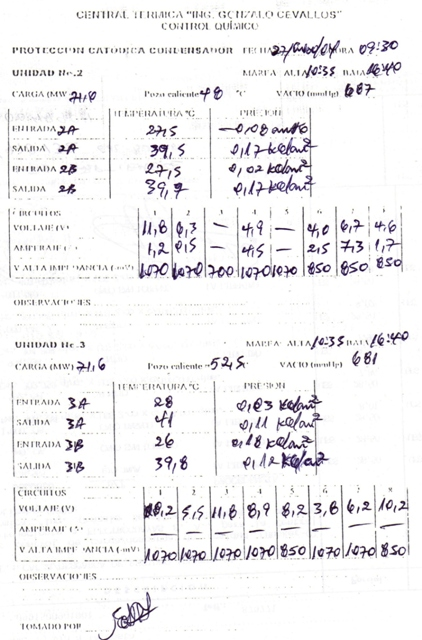 CENTRAL TERMICA "ING. GONZALO CEVALLOS"
CONTROL QUÍMICO
PROTECCION CATODICA CONDENSADOR FECHA 27/ HORA 09:30
UNIDAD No.2 MAREA ALTA 10:35 BAJA 16:40
CARGA (MW) 71,6 Pozo caliente 48 °C VACIO (mmHg) 687
TEMPERATURA °C PRESION
ENTRADA 2A 27,5 -0,08
SALIDA 2A 39,5 0,17 Kg/cm²
ENTRADA 2B 27,5 0,02 Kg/cm²
SALIDA 2B 39,9 0,17 Kg/cm²
CIRCUITOS 1 2 3 4 5 6 7 8
VOLTAJE (V) 11,8 6,3 — 4,9 — 4,0 6,7 4,6
AMPERAJE 1,2 0,5 — 4,5 — 2,5 7,3 1,7
V ALTA IMPEDANCIA (-mV) 1070 1070 700 1070 1070 850 850 850
OBSERVACIONES
UNIDAD No.3 MAREA ALTA 10:35 BAJA 16:40
CARGA (MW) 71,6 Pozo caliente 52,5 VACIO (mmHg) 681
TEMPERATURA °C PRESION
ENTRADA 3A 28 0,03 Kg/cm²
SALIDA 3A 41 0,11 Kg/cm²
ENTRADA 3B 26 0,18 Kg/cm²
SALIDA 3B 39,8 0,12 Kg/cm²
CIRCUITOS 1 2 3 4 5 6 7 8
VOLTAJE (V) 10,2 5,5 11,8 8,9 8,2 3,8 6,2 10,2
AMPERAJE — — — — — — — —
V ALTA IMPEDANCIA (-mV) 1070 1070 1070 1070 850 1070 1070 850
OBSERVACIONES
TOMADO POR